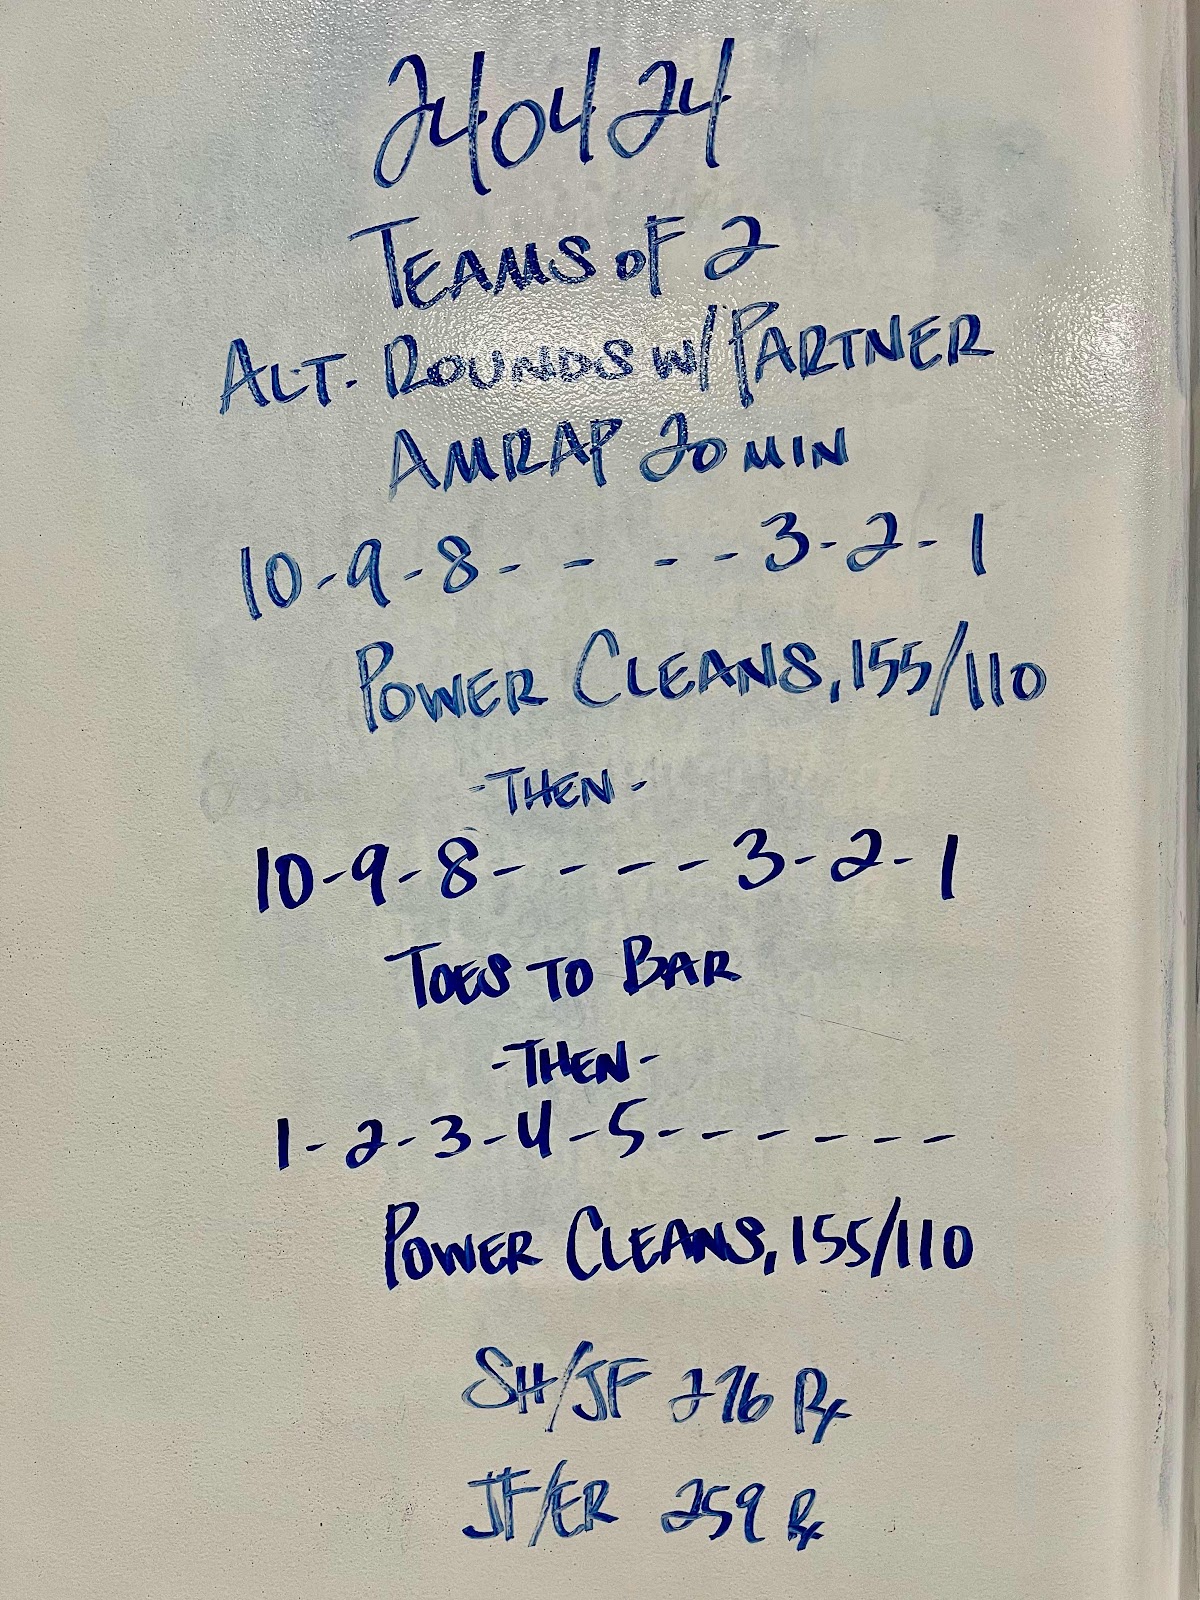 240424
TEAMS OF 2
ALT. ROUNDS W/ PARTNER
AMRAP 20 MIN
10-9-8- - - -3-2-1
POWER CLEANS, 155/110
-THEN-
10-9-8- - - - -3-2-1
TOES TO BAR
-THEN-
1-2-3-4-5- - - - - - -
POWER CLEANS, 155/110
SH/JF 276 Rx
JF/ER 259 Rx